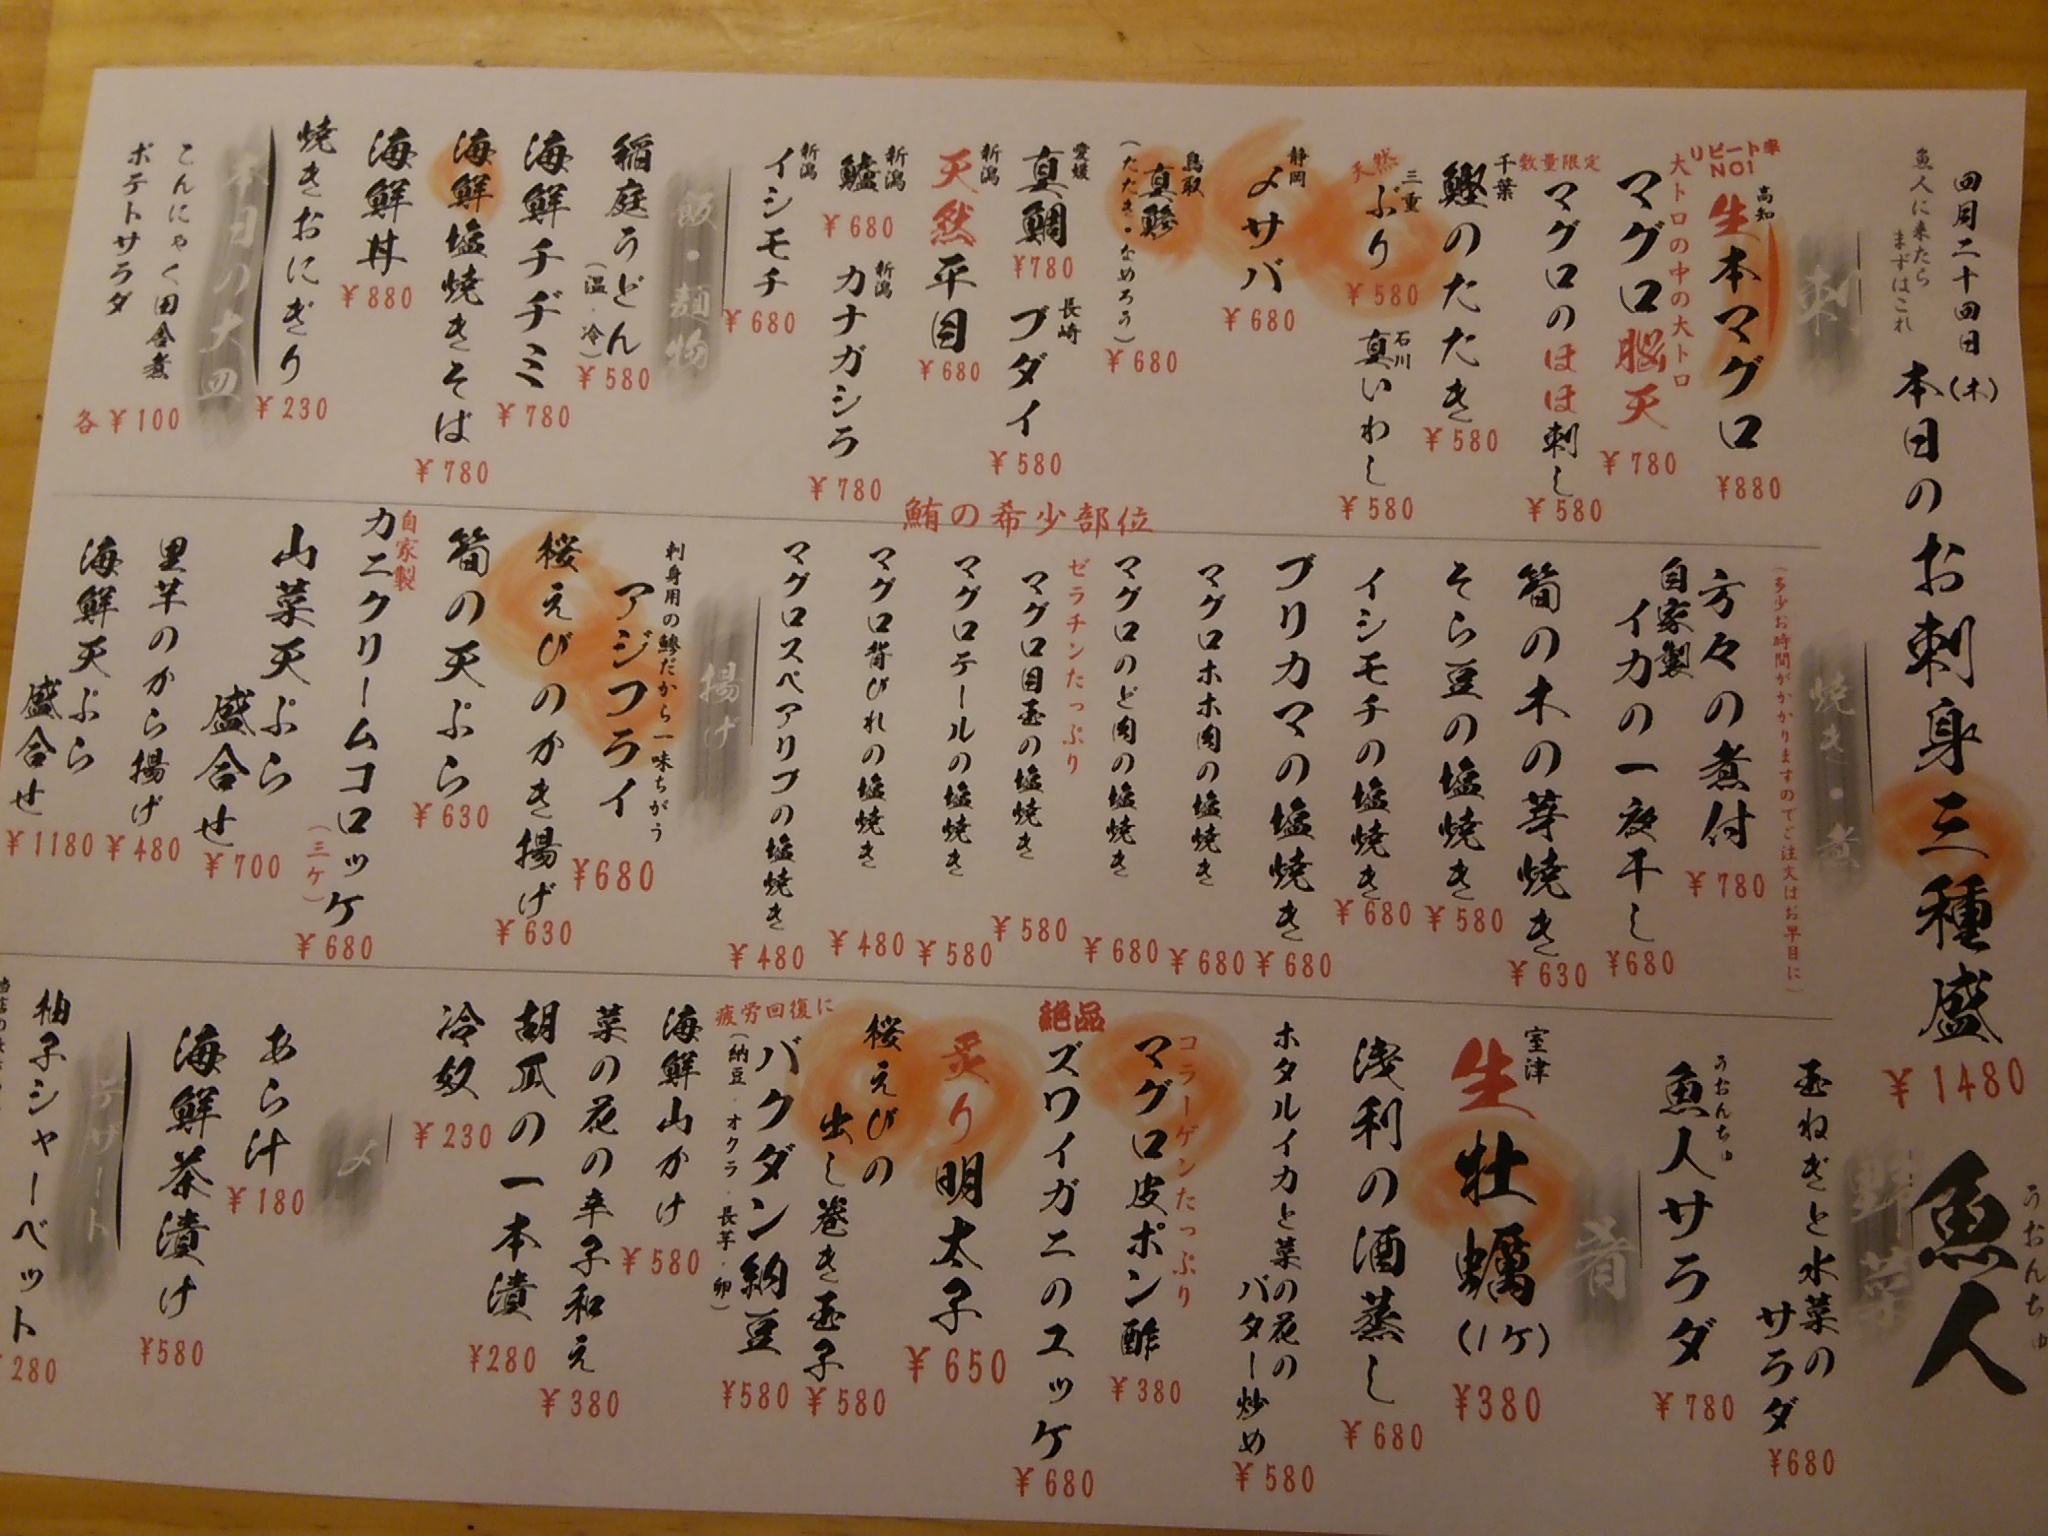 四月二十四日(木)
魚人に来たら
まずはこれ
本日のお刺身三種盛
¥1480
うおんちゅ
魚人
刺
リピート率
NO1
高知
生本マグロ
¥880
大トロの中の大トロ
マグロ脳天
¥780
数量限定
マグロのほほ刺し
¥580
千葉
鰹のたたき
¥580
天然
三重
ぶり
¥580
石川
真いわし
¥580
静岡
〆サバ
¥680
鳥取
真鯵
(たたき・なめろう)
¥680
愛媛
真鯛
¥780
長崎
ブダイ
¥580
新潟
天然平目
¥680
新潟
鱸
¥680
新潟
カナガシラ
¥780
新潟
イシモチ
¥680
飯・麺物
稲庭うどん
(温・冷)
¥580
海鮮チヂミ
¥780
海鮮塩焼きそば
¥780
海鮮丼
¥880
焼きおにぎり
¥230
本日の大皿
こんにゃく田舎煮
ポテトサラダ
各¥100
焼き・煮
(多少お時間がかかりますのでご注文はお早目に)
方々の煮付
¥780
自家製
イカの一夜干し
¥680
筍の木の芽焼き
¥630
そら豆の塩焼き
¥580
イシモチの塩焼き
¥680
ブリカマの塩焼き
¥680
鮪の希少部位
マグロホホ肉の塩焼き
¥680
マグロのど肉の塩焼き
¥680
ゼラチンたっぷり
マグロ目玉の塩焼き
¥580
マグロテールの塩焼き
¥580
マグロ背びれの塩焼き
¥480
マグロスペアリブの塩焼き
¥480
揚げ
刺身用の鯵だから一味ちがう
アジフライ
¥680
桜えびのかき揚げ
¥630
筍の天ぷら
¥630
自家製
カニクリームコロッケ
(三ケ)
¥680
山菜天ぷら
盛合せ
¥700
里芋のから揚げ
¥480
海鮮天ぷら
盛合せ
¥1180
野菜
玉ねぎと水菜の
サラダ
¥680
うおんちゅ
魚人サラダ
¥780
肴
室津
生牡蠣
(1ケ)
¥380
浅利の酒蒸し
¥680
ホタルイカと菜の花の
バター炒め
¥580
コラーゲンたっぷり
マグロ皮ポン酢
¥380
絶品
ズワイガニのユッケ
¥680
炙り明太子
¥650
桜えびの
出し巻き玉子
¥580
疲労回復に
バクダン納豆
(納豆・オクラ・長芋・卵)
¥580
海鮮山かけ
¥580
菜の花の辛子和え
¥380
胡瓜の一本漬
¥280
冷奴
¥230
〆
あら汁
¥180
海鮮茶漬け
¥580
デザート
柚子シャーベット
280